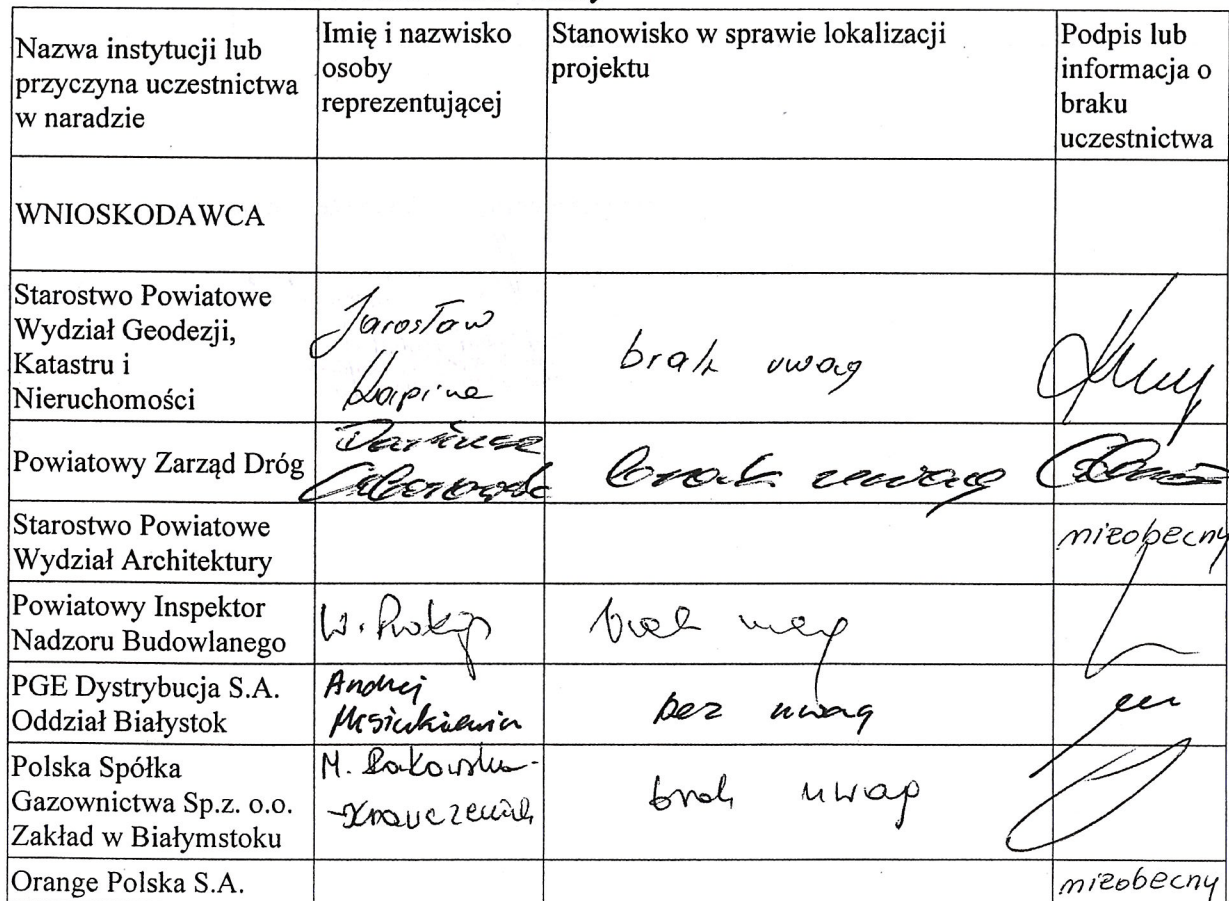 Nazwa instytucji lub
przyczyna uczestnictwa
w naradzie
Imię i nazwisko
osoby
reprezentującej
Stanowisko w sprawie lokalizacji
projektu
Podpis lub
informacja o
braku
uczestnictwa
WNIOSKODAWCA
Starostwo Powiatowe
Wydział Geodezji,
Katastru i
Nieruchomości
Jarosław
brak uwag
Powiatowy Zarząd Dróg
Dariusz
brak uwag
Starostwo Powiatowe
Wydział Architektury
nieobecny
Powiatowy Inspektor
Nadzoru Budowlanego
W. Prokop
brak uwag
PGE Dystrybucja S.A.
Oddział Białystok
Andrzej
bez uwag
Polska Spółka
Gazownictwa Sp.z. o.o.
Zakład w Białymstoku
M.
brak uwag
Orange Polska S.A.
nieobecny